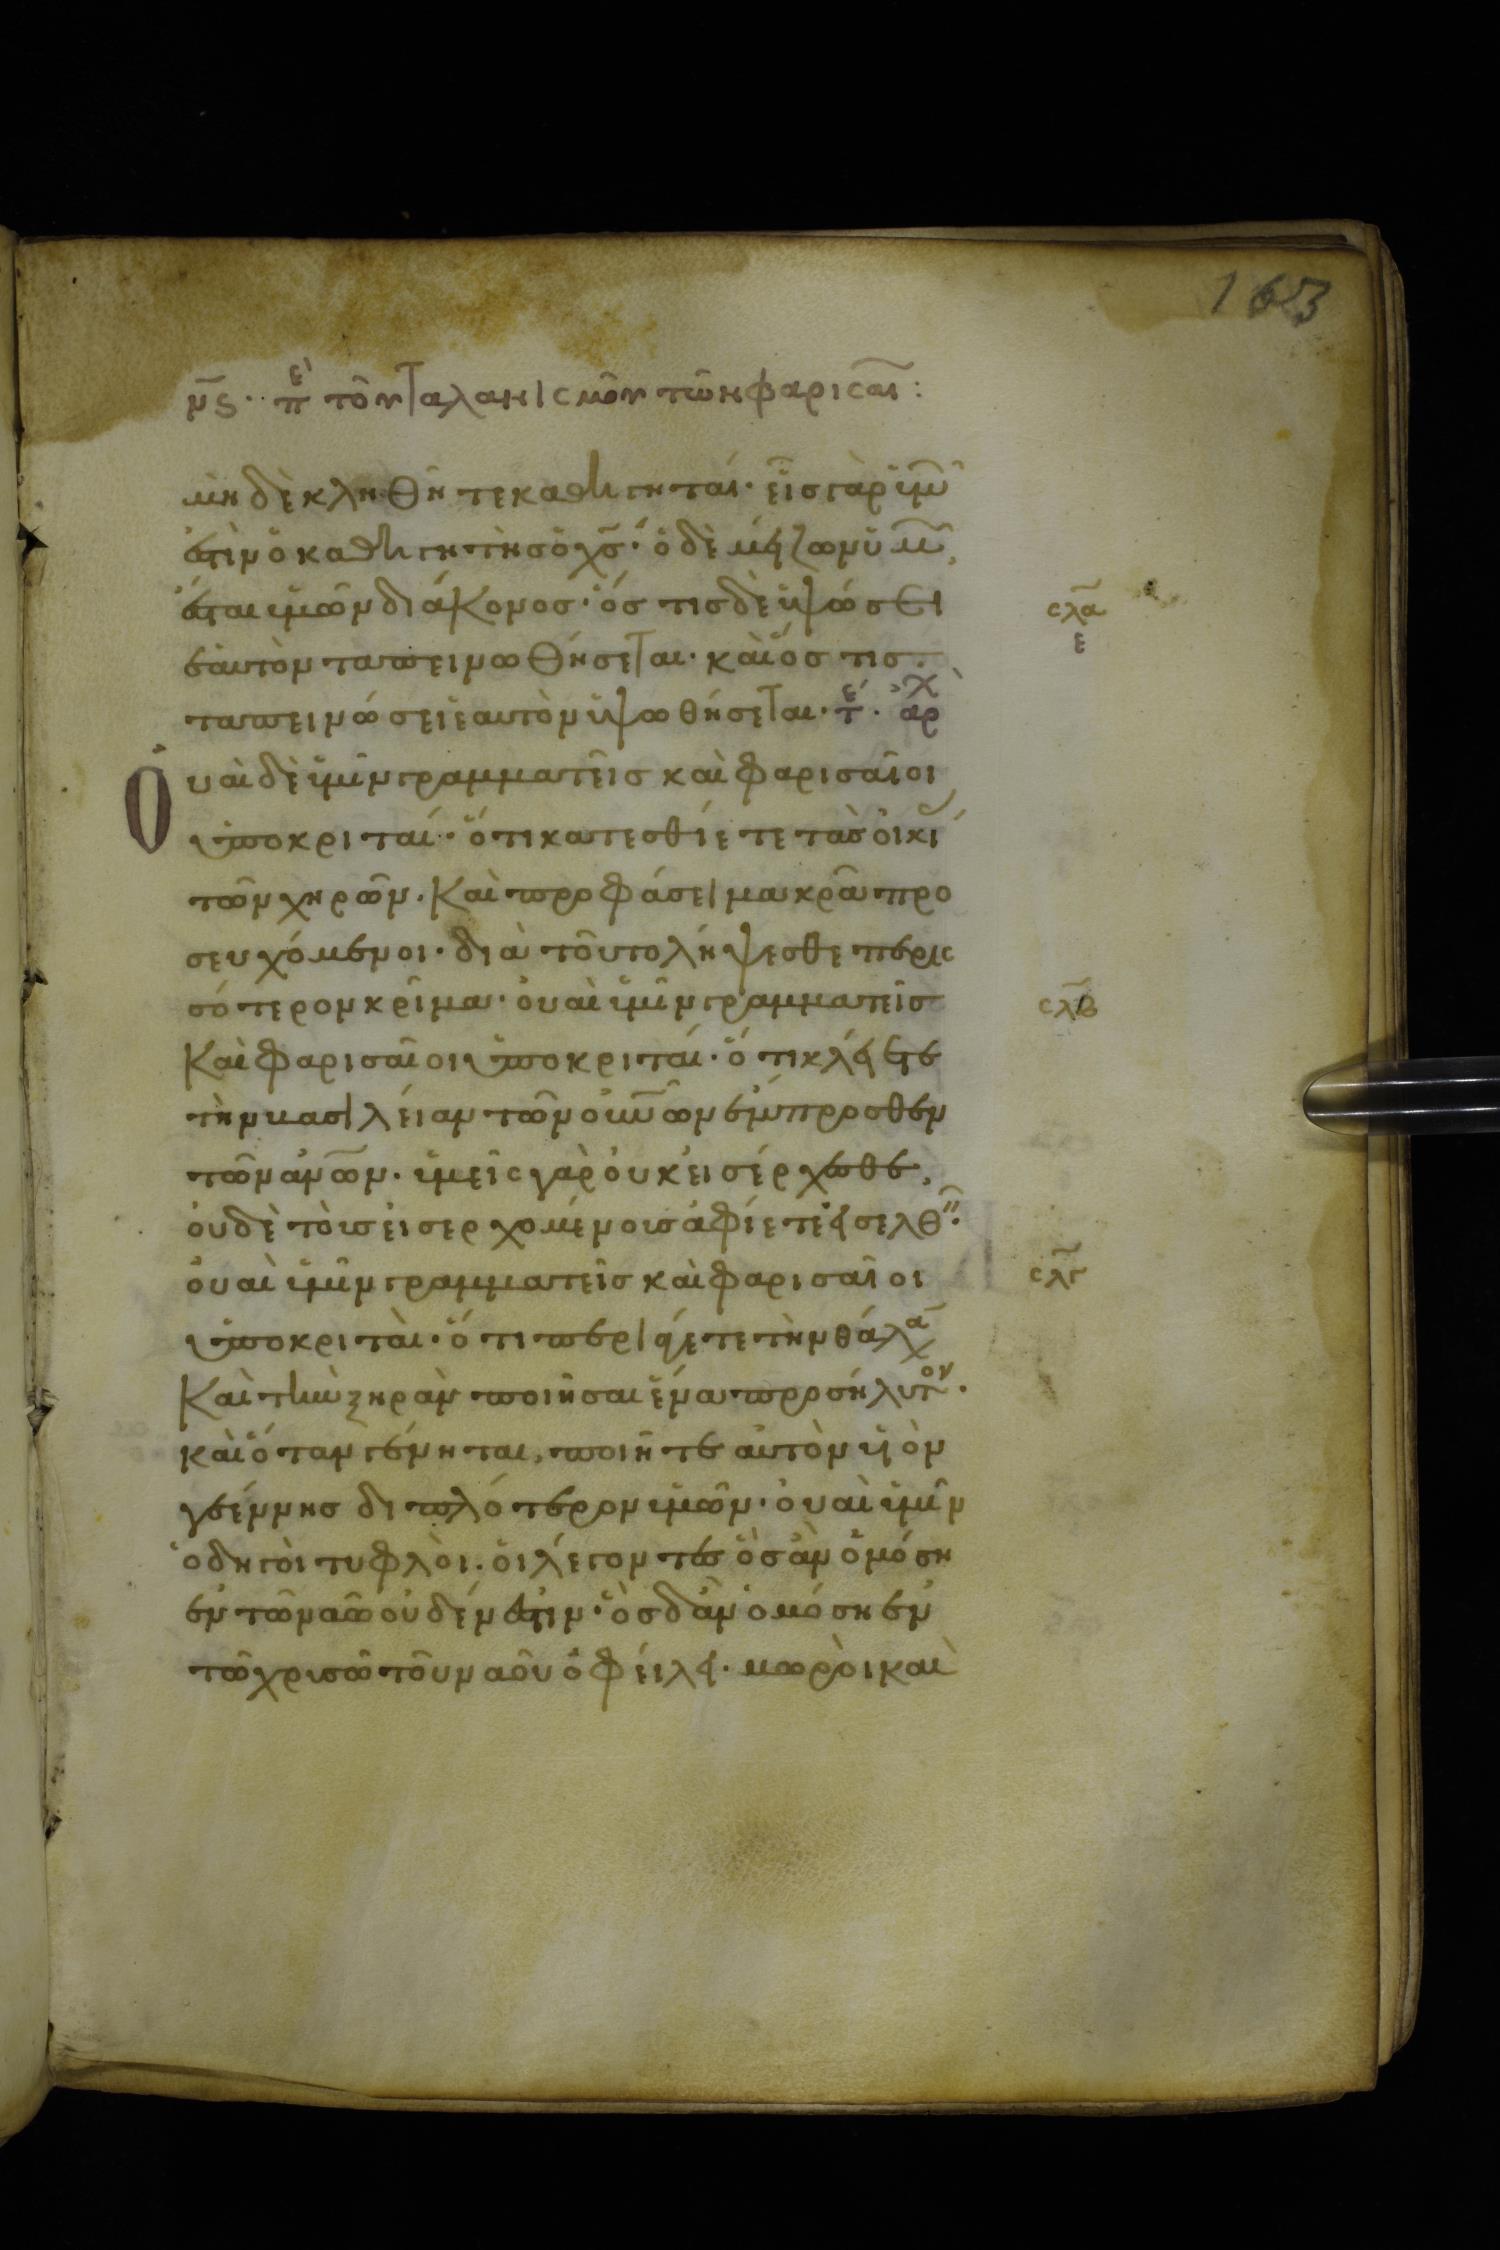 163
νς· πε τὸν ταλανισμὸν τῶν φαρισαί:
μὴ δὲ κληθῆτε καθηγηταί· εἷς γὰρ ὑμῶ
ἐστὶν ὁ καθηγητὴς ὁ χς· ὁ δὲ μείζων ὑμῶ
ἔσται ὑμῶν διάκονος· ὅς τις δὲ ὑψώσει
σλα
ε
ἑαυτὸν ταπεινωθήσεται· καὶ ὅς τις
ταπεινώσει ἑαυτὸν ὑψωθήσεται· τε· ἀρχ
Οὐαὶ δὲ ὑμῖν γραμματεῖς καὶ φαρισαῖοι
ὑποκριταί· ὅτι κατεσθίετε τὰς οἰκί
τῶν χηρῶν· καὶ προφάσει μακρᾶ προ
σευχόμενοι· διὰ τοῦτο λήψεσθε περισ
σότερον κρῖμα· οὐαὶ ὑμῖν γραμματεῖς
σλβ
καὶ φαρισαῖοι ὑποκριταί· ὅτι κλείετε
τὴν βασιλείαν τῶν οὐνῶν ἔμπροσθεν
τῶν ἀνῶν· ὑμεῖς γὰρ οὐκ εἰσέρχεσθε,
οὐδὲ τοὺς εἰσερχομένους ἀφίετε εἰσελθ
οὐαὶ ὑμῖν γραμματεῖς καὶ φαρισαῖοι
σλγ
ὑποκριταὶ· ὅτι περιάγετε τὴν θάλα
καὶ τὴν ξηρὰν ποιῆσαι ἕνα προσήλυτον·
καὶ ὅταν γένηται, ποιῆτε αὐτὸν υἱὸν
γεέννης διπλότερον ὑμῶν· οὐαὶ ὑμῖν
ὁδηγοὶ τυφλοὶ· οἱ λέγοντες ὃς ἂν ὀμόση
ἐν τῶ ναῶ οὐδέν ἐστιν· ὃς δ' ἂν ὀμόση ἐν
τῶ χρυσῶ τοῦ ναοῦ ὀφείλει· μωροὶ καὶ